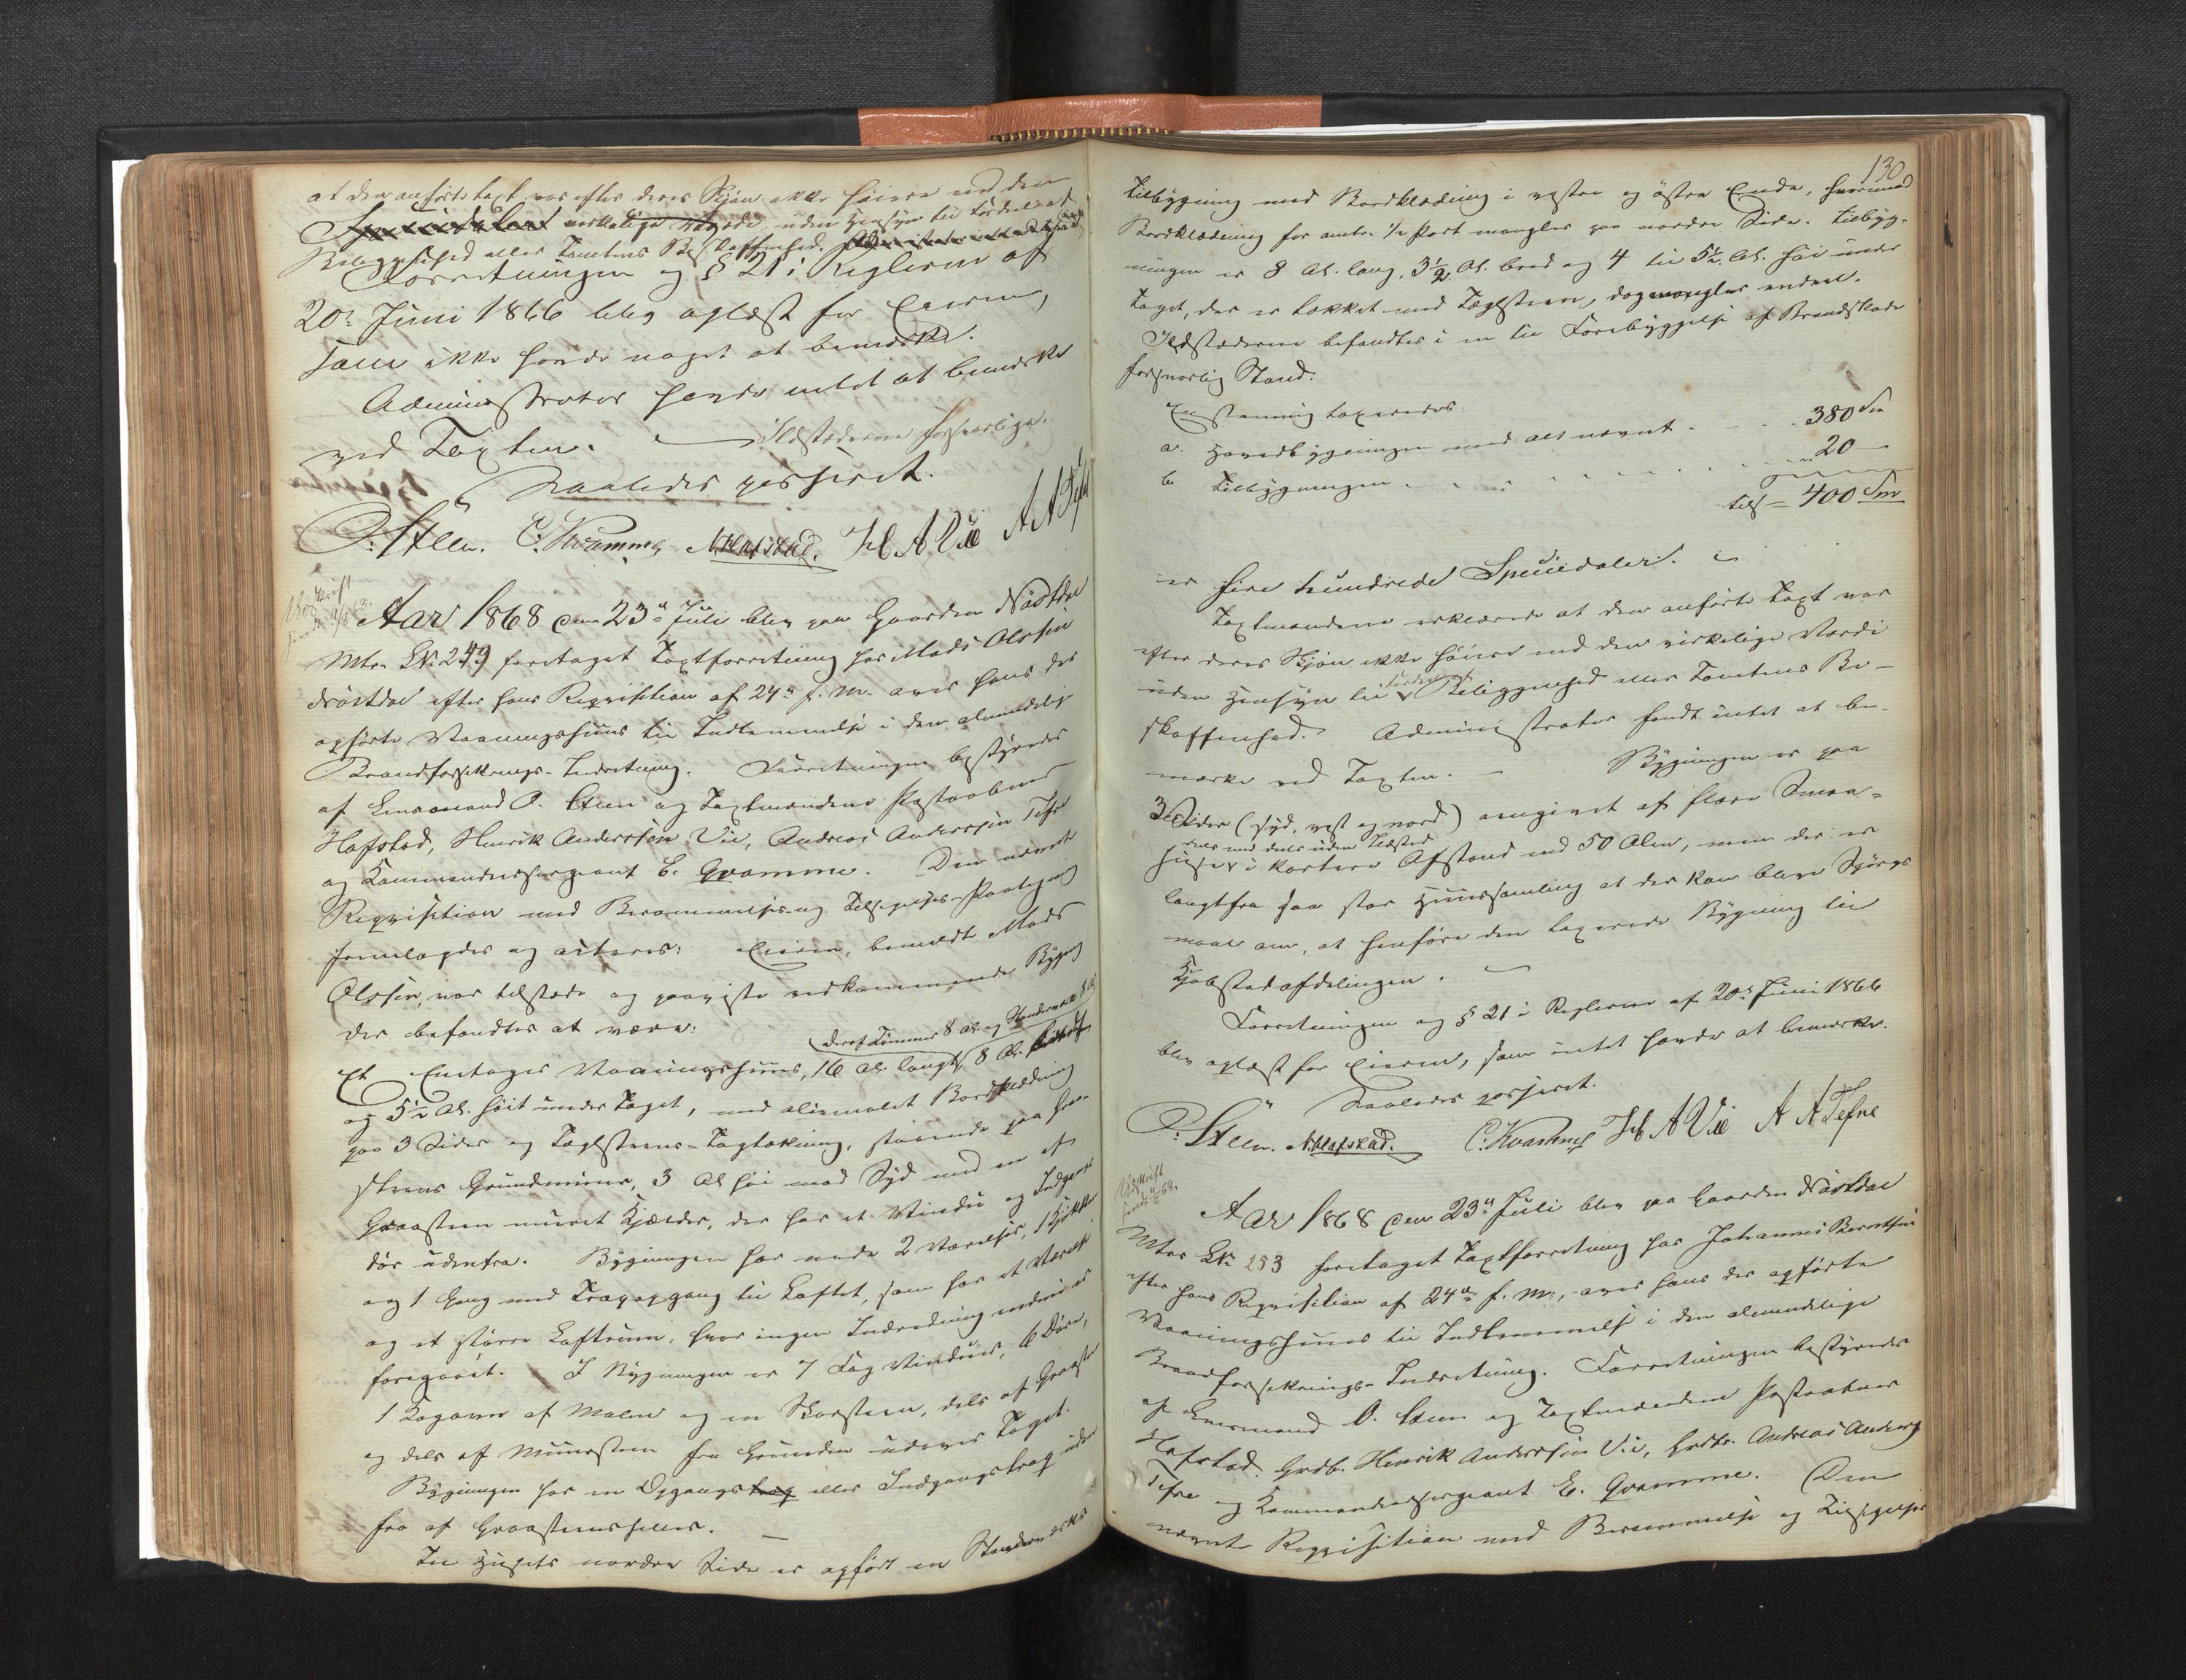 at den anførte Taxt var efter deres Skjøn ikke høiere end den
virkelige Værdi uden Hensyn til Fordele af
Beliggenhed eller Tomtens Beskaffenhed.
Forretningen og § 21 i Regleme af
20de Juni 1866 blev oplæst for Eieren,
som ikke havde noget at bemærke.
Administrator havde intet at bemærke
ved Taxten. — Ildstederne forsvarlige.
Saaledes passeret.
O. Steen. E. Kvamme N. Hafstad. H A Vie A A Tefre
Udskrift
Aar 1868 den 23de Juli blev paa Gaarden Nøstdal
Mtr. L.No. 249 foretaget Taxtforretning hos Mads Olssøn
Nøstdal efter hans Reqvisition af 24de f. M. over hans der
opførte Vaaningshuus til Indlemmelse i den almindelige
Brandforsikrings-Indretning. Forretningen bestyredes
af Lensmand O. Steen og Taxtmændene Postaabner
Hafstad, Henrik Anderssøn Vie, Andreas Anderssøn Tefre
og Kommandeersergeant E. Qvamme. Den nævnte
Reqvisition med Berammelses og Tilsigelses-Paategning
fremlagdes og acteres: Eieren, bemeldte Mads
Olssøn, var tilstæde og paaviste vedkommende Bygning
der befandtes at være:
deraf Tømmer 8 Al. og Stenderverk 8 Al.
Et Enetages Vaaningshuus, 16 Al. langt, 8 Al. bredt
og 5½ Al. høit under Taget, med oliemalet Bordklædning
paa 3 Sider og Taglsteens-Tagtækning, staaende paa Graa-
steens Grundmuur, 3 Al. høi mod Syd med en af
Graasteen muret Kjælder, der har et Vindu og Indgangs
dør udenfra. Bygningen har nede 2 Værelser, 1 Kjøkken
og 1 Gang med Trapopgang til Loftet, som har et Værelse
og et større Loftrum, hvor ingen Indredning endnu er
foregaaet. I Bygningen er 7 Fag Vinduer, 6 Døre,
1 Kogeovn af Malm og en Skorsteen, dels af Graasteen
og dels af Muursteen fra Grunden udover Taget.
Bygningen har en Opgangs eller Indgangstrap uden
fra af Graasteensheller. —
Til Husets nordre Side er opført en Stenderverks
130
Tilbygning med Bordklædning i vestre og østre Ende, hvorimod
Bordklædning for omtr. ½ Part mangler paa nordre Side. Tilbyg-
ningen er 8 Al. lang, 3½ Al. bred og 4 til 5½ Al. høi under
Taget, der er tækket med Taglsteen, dog mangler endeel.
Ildstæderne befandtes i en til Forebyggelse af Brandskade
forsvarlig Stand.
Enstemmig taxeredes
a. Hovedbygningen med alt nævnt . . . 380 Spd
b. Tilbygningen . . . . . . . 20 —
tils = 400 Spd
er fire hundrede Speciedaler.
Taxtmændene erklærede at den anførte Taxt var
efter deres Skjøn ikke høiere end den virkelige Værdi
uden Hensyn til Fordele af Beliggenhed eller Tomtens Be-
skaffenhed. Administrator fandt intet at be-
mærke ved Taxten. — Bygningen er paa
3 Sider (syd, vest og nord) omgivet af flere Smaa-
dels med dels uden Ildsted
huse i kortere Afstand end 50 Alen, men der er
langtfra saa stor Huussamling at der kan blive Spørgs
maal om, at henføre den taxerede Bygning til
Kjøbstadafdelingen. —
Forretningen og § 21 i Regleme af 20de Juni 1866
blev oplæst for Eieren, som intet havde at bemærke.
Saaledes passeret.
O. Steen. N. Hafstad. E. Kvamme H A Vie A A Tefre
Udskrift
Aar 1868 den 23de Juli blev paa Gaarden Nøstdal
Mtr. L.No. 253 foretaget Taxtforretning hos Johannes Berntsøn
efter hans Reqvisition af 24de f. M., over hans der opførte
Vaaningshuus til Indlemmelse i den almindelige
Brandforsikrings-Indretning. Forretningen bestyredes
af Lensmand O. Steen og Taxtmændene Postaabner
Hafstad, Grdb. Henrik Anderssøn Vie, Grdbr. Andreas Anderss
Tefre og Kommandeersergeant E. Qvamme. Den
nævnte Reqvisition med Berammelse og Tilsigelses